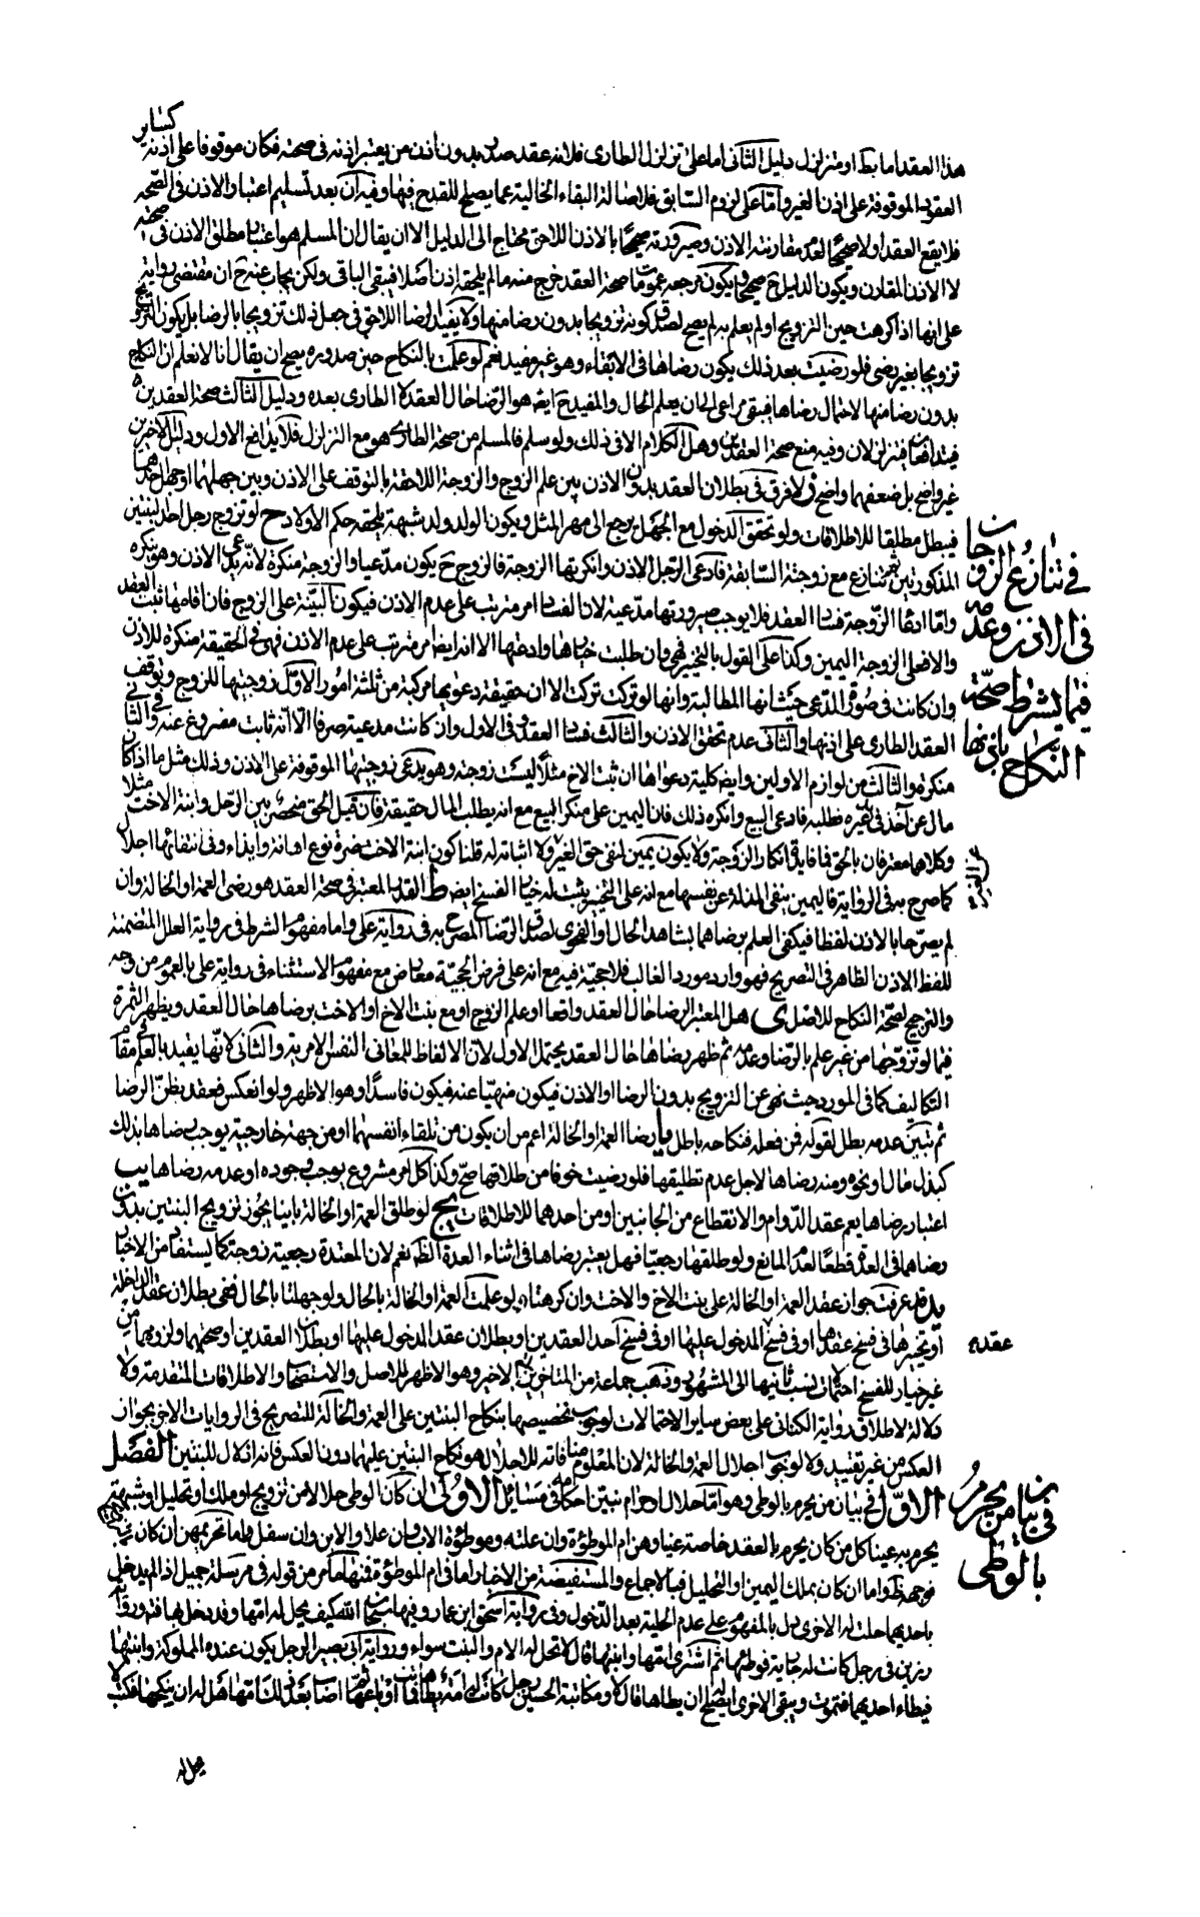 كساير
هذا العقد اما بط او متزلزل دليل الثانى اما على تزلزل الطارى فلانه عقد صدر بدون اذن من يعتبر اذنه فى صحته فكان موقوفا على اذنه
العقود الموقوفة على اذن الغير واما على لزوم السابق فلاصالة البقاء الخالية عما يصلح للقدح فيها وفيه ان بعد تسليم اعتبار الاذن فى الصحة
فلا يقع العقد اولا صحيحا لعدم مقارنته الاذن وصيرورته صحيحا بالاذن اللاحق محتاج الى الدليل الا ان يقال ان المسلم هو اعتبار مطلق الاذن فى صحته
لا الاذن المقارن ويكون الدليل ح صحيحا ويكون مرجعه عمومات صحة العقد خرج منه ما لم يلحقه اذن اصلا فيبقى الباقى ولكن يجاب عنه ح ان مقتضى رواية
على انها اذا كرهت حين التزويج او لم يعلم به لم يصح لصدق كونه تزويجا بدون رضا منها ولا يفيد الرضا اللاحق فى جعل ذلك تزويجا بالرضا بل يكون التزويج
تزويجا بغير رضى فلو رضيت بعد ذلك يكون رضاها فى الابقاء وهو غير مفيد نعم لو علمت بالنكاح حين صدوره يصح ان يقال انا لا نعلم ان النكاح
بدون رضا منها لاحتمال رضاها فيبقى مراعى الى ان يعلم الحال والمفيد ح ايضا هو الرضا حال العقد لا الطارى بعده ودليل الثالث صحة العقدين
فيتدافعان فيتزلزلان وفيه منع صحة العقدين وهل الكلام الا فى ذلك ولو سلم فالمسلم من صحة الطارى هو مع التزلزل فلا يدافع الاول ودليل الاخيرين
غير واضح بل ضعفهما واضح لا فرق فى بطلان العقد بدون الاذن بين علم الزوج والزوجة اللاحقة بالتوقف على الاذن وبين جهلهما او جهل احدهما
فيبطل مطلقا للاطلاقات ولو تحقق الدخول مع الجهل يرجع الى مهر المثل ويكون الولد ولد شبهة يلحقه حكم الاولاد ح لو تزوج رجل احد البنتين
المذكورتين ثم تنازع مع زوجته السابقة فادعى الرجل الاذن وانكرتها الزوجة فالزوج ح يكون مدعيا والزوجة منكرة لانه يدعى الاذن وهو ينكره
واما ادعاء الزوجة فساد العقد فلا يوجب صيرورتها مدعية لان الفساد امر مترتب على عدم الاذن فيكون البينة على الزوج فان اقامها ثبت العقد
والا فعلى الزوجة اليمين وكذا على القول بالتخيير فهى وان طلبت خيارها وادعتها الا انه ايضا مترتب على عدم الاذن فهى فى الحقيقة منكرة للاذن
وان كانت فى صورة المدعى حيث انها المطالبة وانها لو تركت تركت الا ان حقيقة دعويها مركبة من ثلثة امور الاول زوجيتها للزوج وتوقف
العقد الطارى على اذنها والثانى عدم تحقق الاذن والثالث فساد العقد فى الاول وان كانت مدعية صرفا الا انه ثابت مفروغ عنه وفى الثانى
منكرة والثالث من لوازم الاولين وايضا كلية دعواها ان بنت الاخ مثلا ليست زوجته وهو يدعى زوجيتها الموقوفة على الاذن وذلك مثل ما اذا كان
مال عن اخذ فى يد غيره فطلبه فادعى البيع وانكره ذلك فان اليمين على منكر البيع مع انه يطلب المال حقيقة فان قيل الحق منحصر بين الرجل وابنة الاخت مثلا
وكلاهما معترفان بالحق فما فايدة انكار الزوجة ولا يكون يمين لنفى حق الغير ولا اثباته له قلنا كون ابنة الاخت ضرة نوع اهانة وايذاء وفى انتفائها اجلال
كما صرح به فى الرواية فاليمين ينفى المذلة عن نفسها مع انه على التخيير يثبت له خيار الفسخ ايضا ط القدر المعتبر فى صحة العقد هو رضى العمة او الخالة وان
لم يصرحا بالاذن لفظا فيكفى العلم برضاهما بشاهد الحال او الفحوى لصدق الرضا المصرح به فى رواية على واما مفهوم الشرط فى رواية العلل المتضمنة
للفظ الاذن الظاهر فى التصريح فهو وارد مورد الغالب فلا حجية فيه مع انه على فرض الحجية معارض مع مفهوم الاستثناء فى رواية على بالعموم من وجه
والترجيح لصحة النكاح للاصل ى هل المعتبر الرضا حال العقد واقعا او علم الزوج او مع بنت الاخ او الاخت برضاها حال العقد ويظهر الثمرة
فيما لو تزوجها من غير علم بالرضا وعدمه ثم ظهر رضاها حال العقد يحتمل الاول لان الالفاظ للمعانى النفس الامرية والثانى لانها يقيد بالعلم فى مقام
التكاليف كما فى المورد حيث نهى عن التزويج بدون الرضا او الاذن فيكون منهيا عنه فيكون فاسدا وهو الاظهر ولو انعكس فعقد بظن الرضا
ثم تبين عدمه بطل لقوله فمن فعله فنكاحه باطل يا رضا العمة او الخالة اعم من ان يكون من تلقاء انفسهما او من جهة خارجية يوجب رضاها بذلك
كبذل مال او نحوه ومنه رضاها لاجل عدم تطليقها فلو رضيت خوفا من طلاقها صح وكذا كل امر مشروع يوجب وجوده او عدمه رضاها يب
اعتبار رضاها يعم عقد الدوام والانقطاع من الجانبين او من احدهما للاطلاقات يج لو طلق العمة او الخالة باينا يجوز تزويج البنتين بدون
رضاهما فى العدة قطعا لعدم المانع ولو طلقها رجعيا فهل يعتبر رضاها فى اثناء العدة الظ نعم لان المعتدة رجعية زوجة كما يستفاد من الاخبار
يد قد عرفت جواز عقد العمة او الخالة على بنت الاخ والاخت وان كرهتاه ولو علمت العمة او الخالة بالحال ولو جهلتا بالحال ففى بطلان عقد الداخلة
او تخيرها فى فسخ عقدها او فى فسخ المدخول عليها او فى فسخ احد العقدين او بطلان عقد المدخول عليها او بطلان العقدين او صحتهما ولزومهما من
عقده
غير خيار للفسخ احتمالات نسب ثانيها الى المشهور وذهب جماعة من المتاخرين الى الاخير وهو الاظهر للاصل والاستصحاب والاطلاقات المتقدمة ولا
دلالة لاطلاق رواية الكنانى على بعض ساير الاحتمالات لوجوب تخصيصها بنكاح البنتين على العمة والخالة للتصريح فى الروايات الاخر بجواز
العكس من غير تقييد ولا لوجوب اجلال العمة والخالة لان المعلوم منافاته للاجلال هو نكاح البنتين عليهما دون العكس فانه اذلال للبنتين الفصل
الاول فى بيان من يحرم بالوطى وهو اما حلال او حرام نبين احكامه فى مسائل الاولى ان كان الوطى حلالا من تزويج او ملك او تحليل او شبهة
يحرم به عينا كل من كان يحرم بالعقد خاصة عينا وهن ام الموطوءة وان علت وموطوءة الاب وان علا والابن وان سفل واما تحريمهن ان كان
فوجهه ظ واما ان كان بملك اليمين او التحليل فبالاجماع والمستفيضة من الاخبار اما فى ام الموطوءة فمنها ما مر من قوله فى مرسلة جميل اذا لم يدخل
باحديهما حلت له الاخرى دل بالمفهوم على عدم الحلية بعد الدخول وفى رواية اسحق ابن عمار وفيها سبحان الله كيف يحل له امها وقد دخل بها ورواية
رزين فى رجل كانت له جارية فوطئها ثم اشترى امها وابنتها قال لا تحل له الام والبنت سواء ورواية ابى بصير الرجل يكون عنده المملوكة وابنتها
فيطاء احديهما فتموت ويبقى الاخرى ايصلح له ان يطاها قال لا ومكاتبة الحسين رجل كانت له امة يطاها فماتت او باعها ثم اصاب بعد ذلك امها هل له ان ينكحها فكتب لا
يحل له
فى تنازع الزوجات
فى الاذن وعدمه
فيما يشترط صحة
النكاح باذنها
فى بيان من يحرم
بالوطى